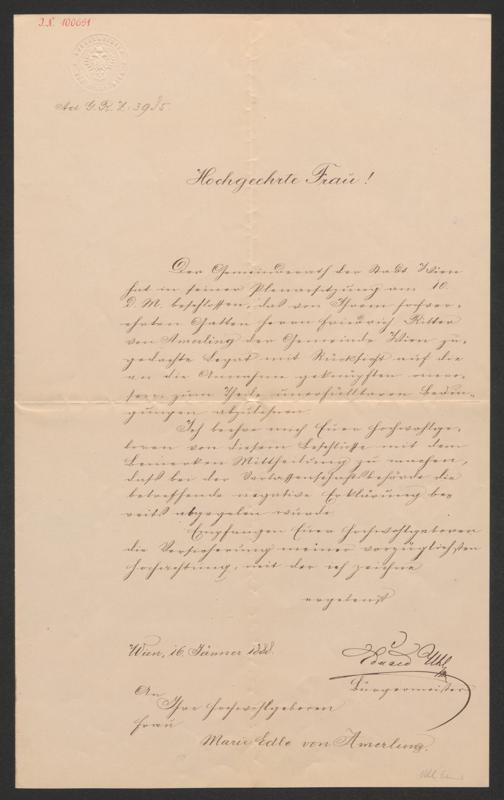 I.N. 100691
Ad G.R.Z. 3985.
Hochgeehrte Frau!
Der Gemeinderath der Stadt Wien
hat in seiner Plenarsitzung am 10.
d. M. beschlossen, das von Ihrem hochver-
ehrten Gatten Herrn Friedrich Ritter
von Amerling der Gemeinde Wien zu-
gedachte Legat mit Rücksicht auf die
an die Annahme geknüpften onero-
sen, zum Theile unerfüllbaren Bedin-
gungen abzulehnen.
Ich beehre mich Euer Hochwohlge-
boren von diesem Beschlusse mit dem
Bemerken Mittheilung zu machen,
daß bei der Verlassenschaftsbehörde die
betreffende negative Erklärung be-
reits abgegeben wurde.
Empfangen Euer Hochwohlgeboren
die Versicherung meiner vorzüglichsten
Hochachtung, mit der ich zeichne
ergebenst
Wien, 16. Jänner 1888.
Eduard Uhl
Bürgermeister
An
Ihre Hochwohlgeboren
Frau
Marie Edle von Amerling.